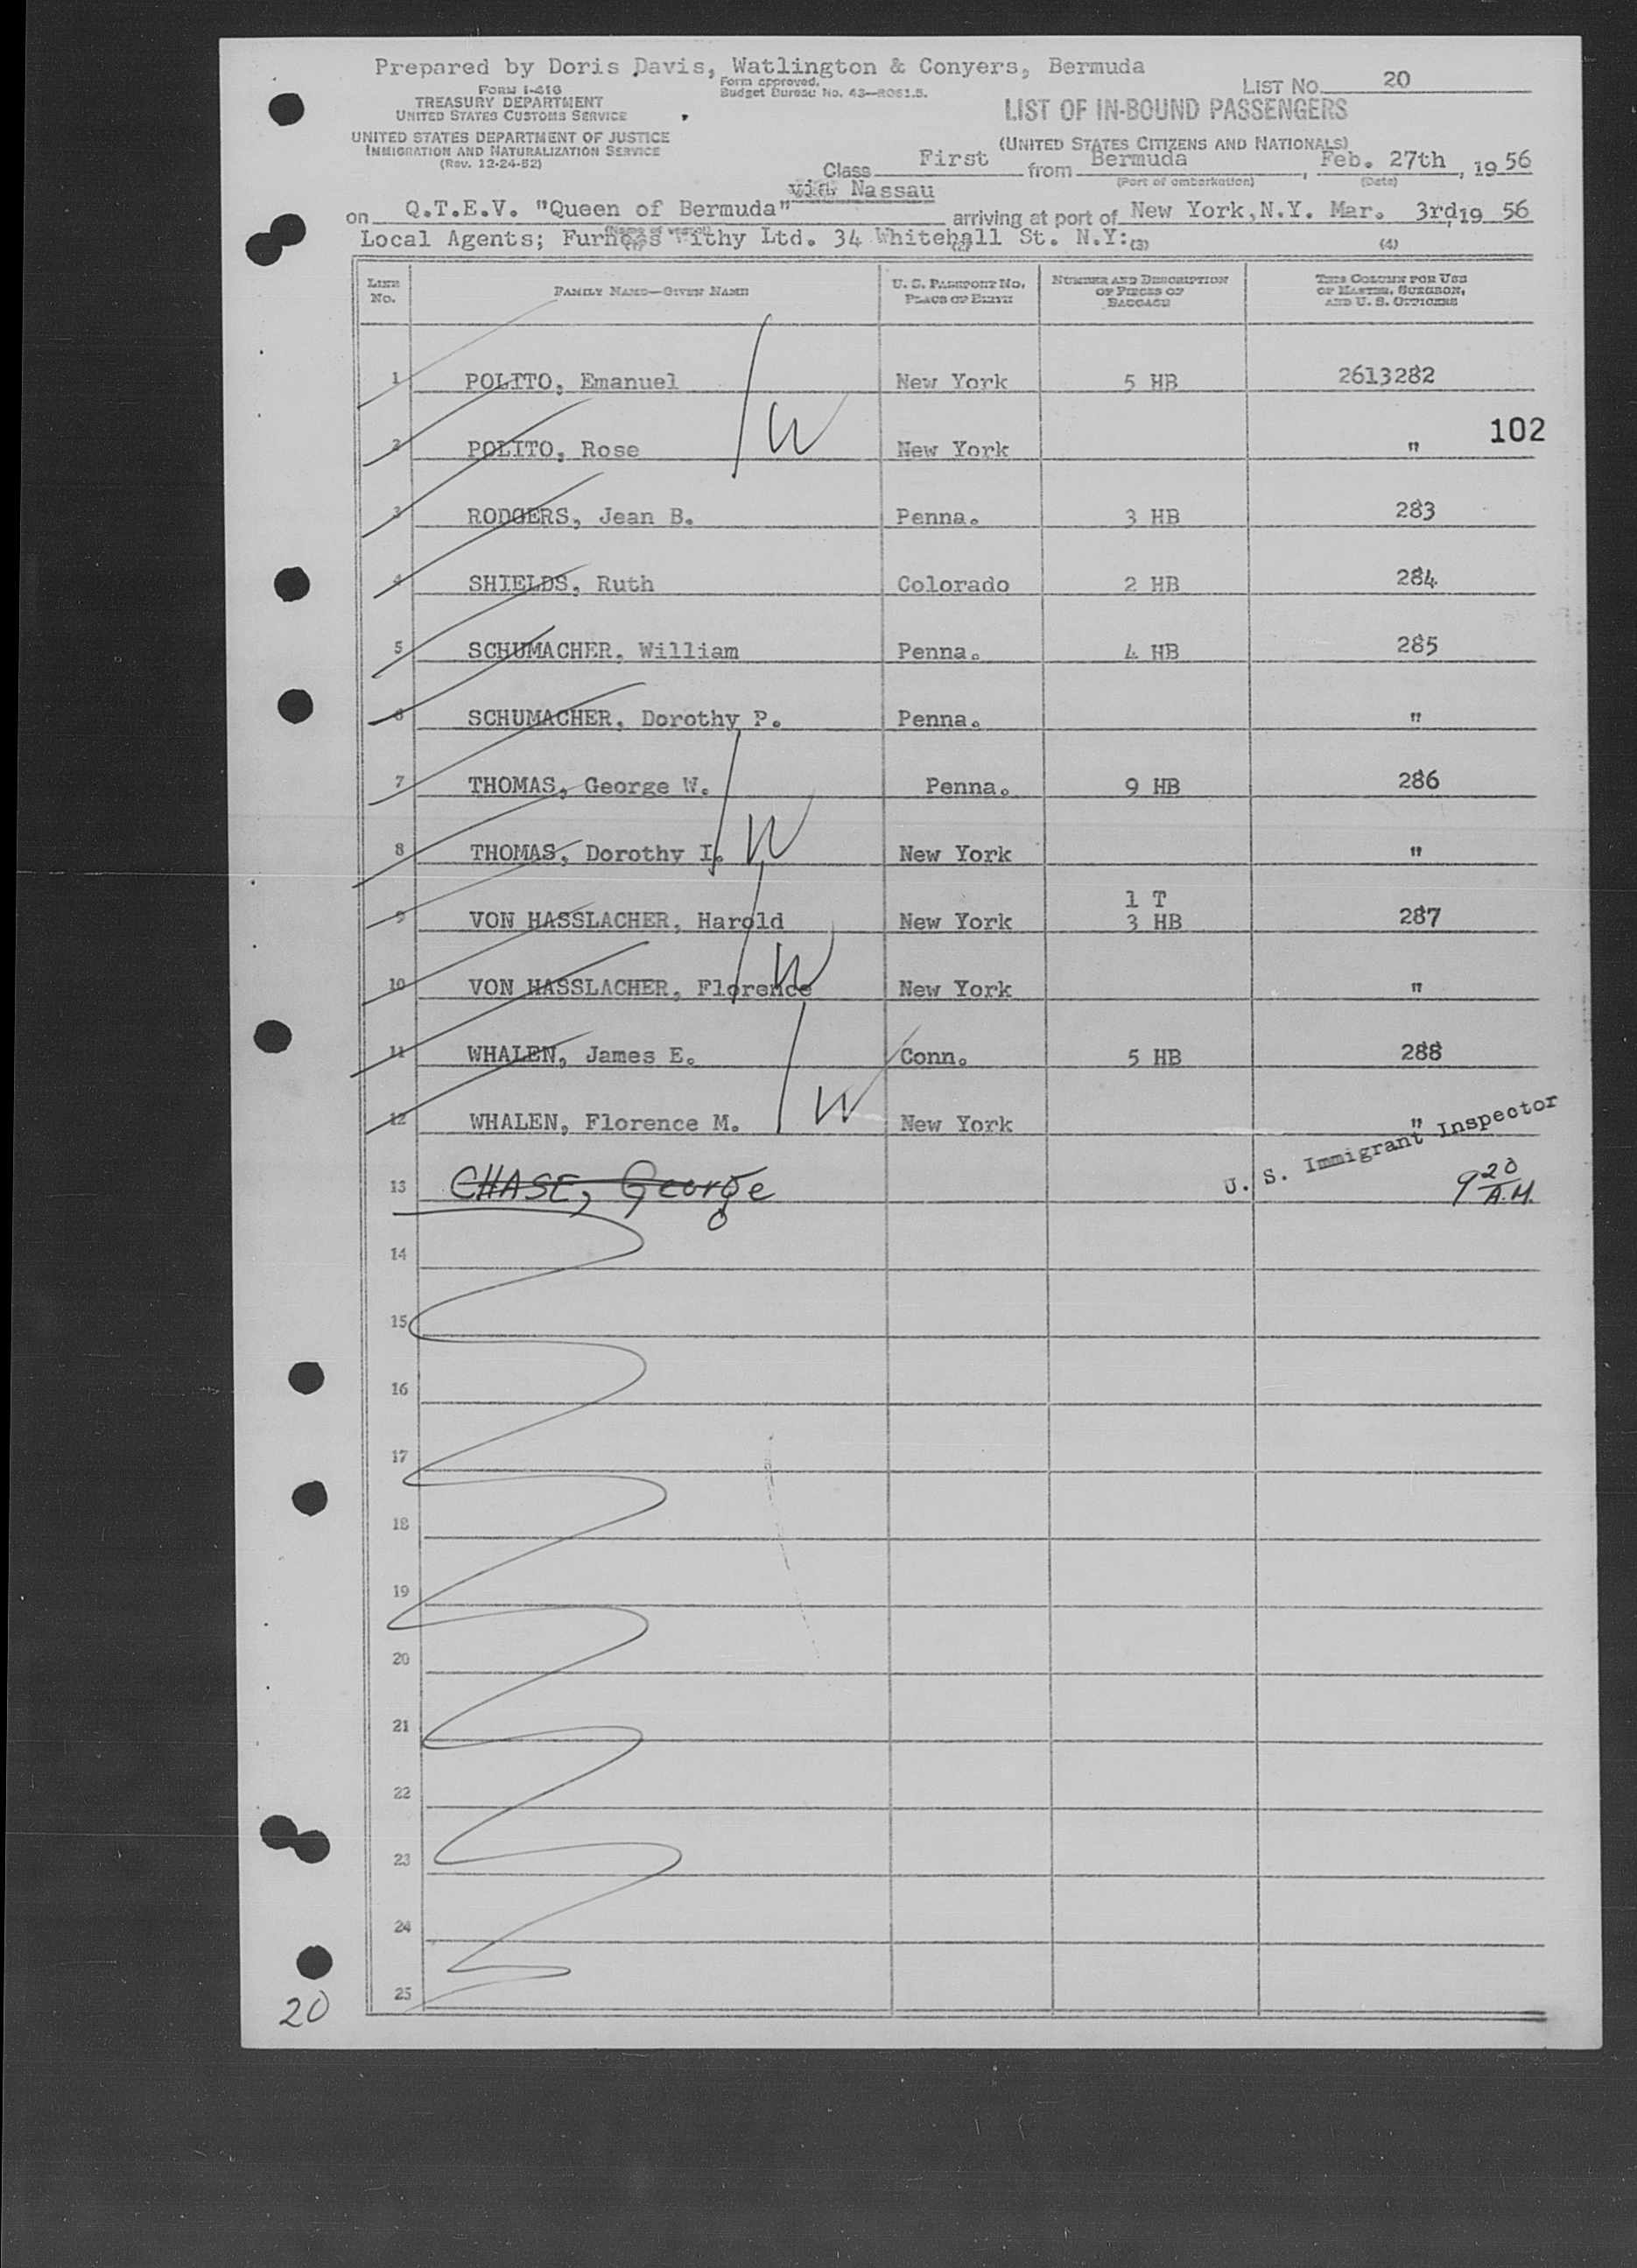 Prepared by Doris Davis, Watlington & Conyers, Bermuda
Form approved.
Budget Bureau No. 43—R061.5.
LIST No. 20
FORM I-416
TREASURY DEPARTMENT
UNITED STATES CUSTOMS SERVICE
UNITED STATES DEPARTMENT OF JUSTICE
IMMIGRATION AND NATURALIZATION SERVICE
(Rev. 12-24-52)
LIST OF IN-BOUND PASSENGERS
(UNITED STATES CITIZENS AND NATIONALS)
Class First from Bermuda, Feb. 27th, 1956
(Port of embarkation) (Date)
via Nassau
on Q.T.E.V. "Queen of Bermuda" arriving at port of New York, N.Y. Mar. 3rd, 1956
Local Agents; Furness Withy Ltd. 34 Whitehall St. N.Y: (3) (4)
LINE No. FAMILY NAME—GIVEN NAME U. S. PASSPORT NO. PLACE OF BIRTH NUMBER AND DESCRIPTION OF PIECES OF BAGGAGE THIS COLUMN FOR USE OF MASTER, SURGEON, AND U. S. OFFICERS
1 POLITO, Emanuel New York 5 HB 2613282
W 102
2 POLITO, Rose New York "
3 RODGERS, Jean B. Penna. 3 HB 283
4 SHIELDS, Ruth Colorado 2 HB 284
5 SCHUMACHER, William Penna. 4 HB 285
6 SCHUMACHER, Dorothy P. Penna. "
7 THOMAS, George W. Penna. 9 HB 286
8 THOMAS, Dorothy I. W New York "
1 T
9 VON HASSLACHER, Harold New York 3 HB 287
W
10 VON HASSLACHER, Florence New York "
11 WHALEN, James E. Conn. 5 HB 288
12 WHALEN, Florence M. W New York "
U. S. Immigrant Inspector
13 CHASE, George 9 20 A.M.
14
15
16
17
18
19
20
21
22
23
24
25
20